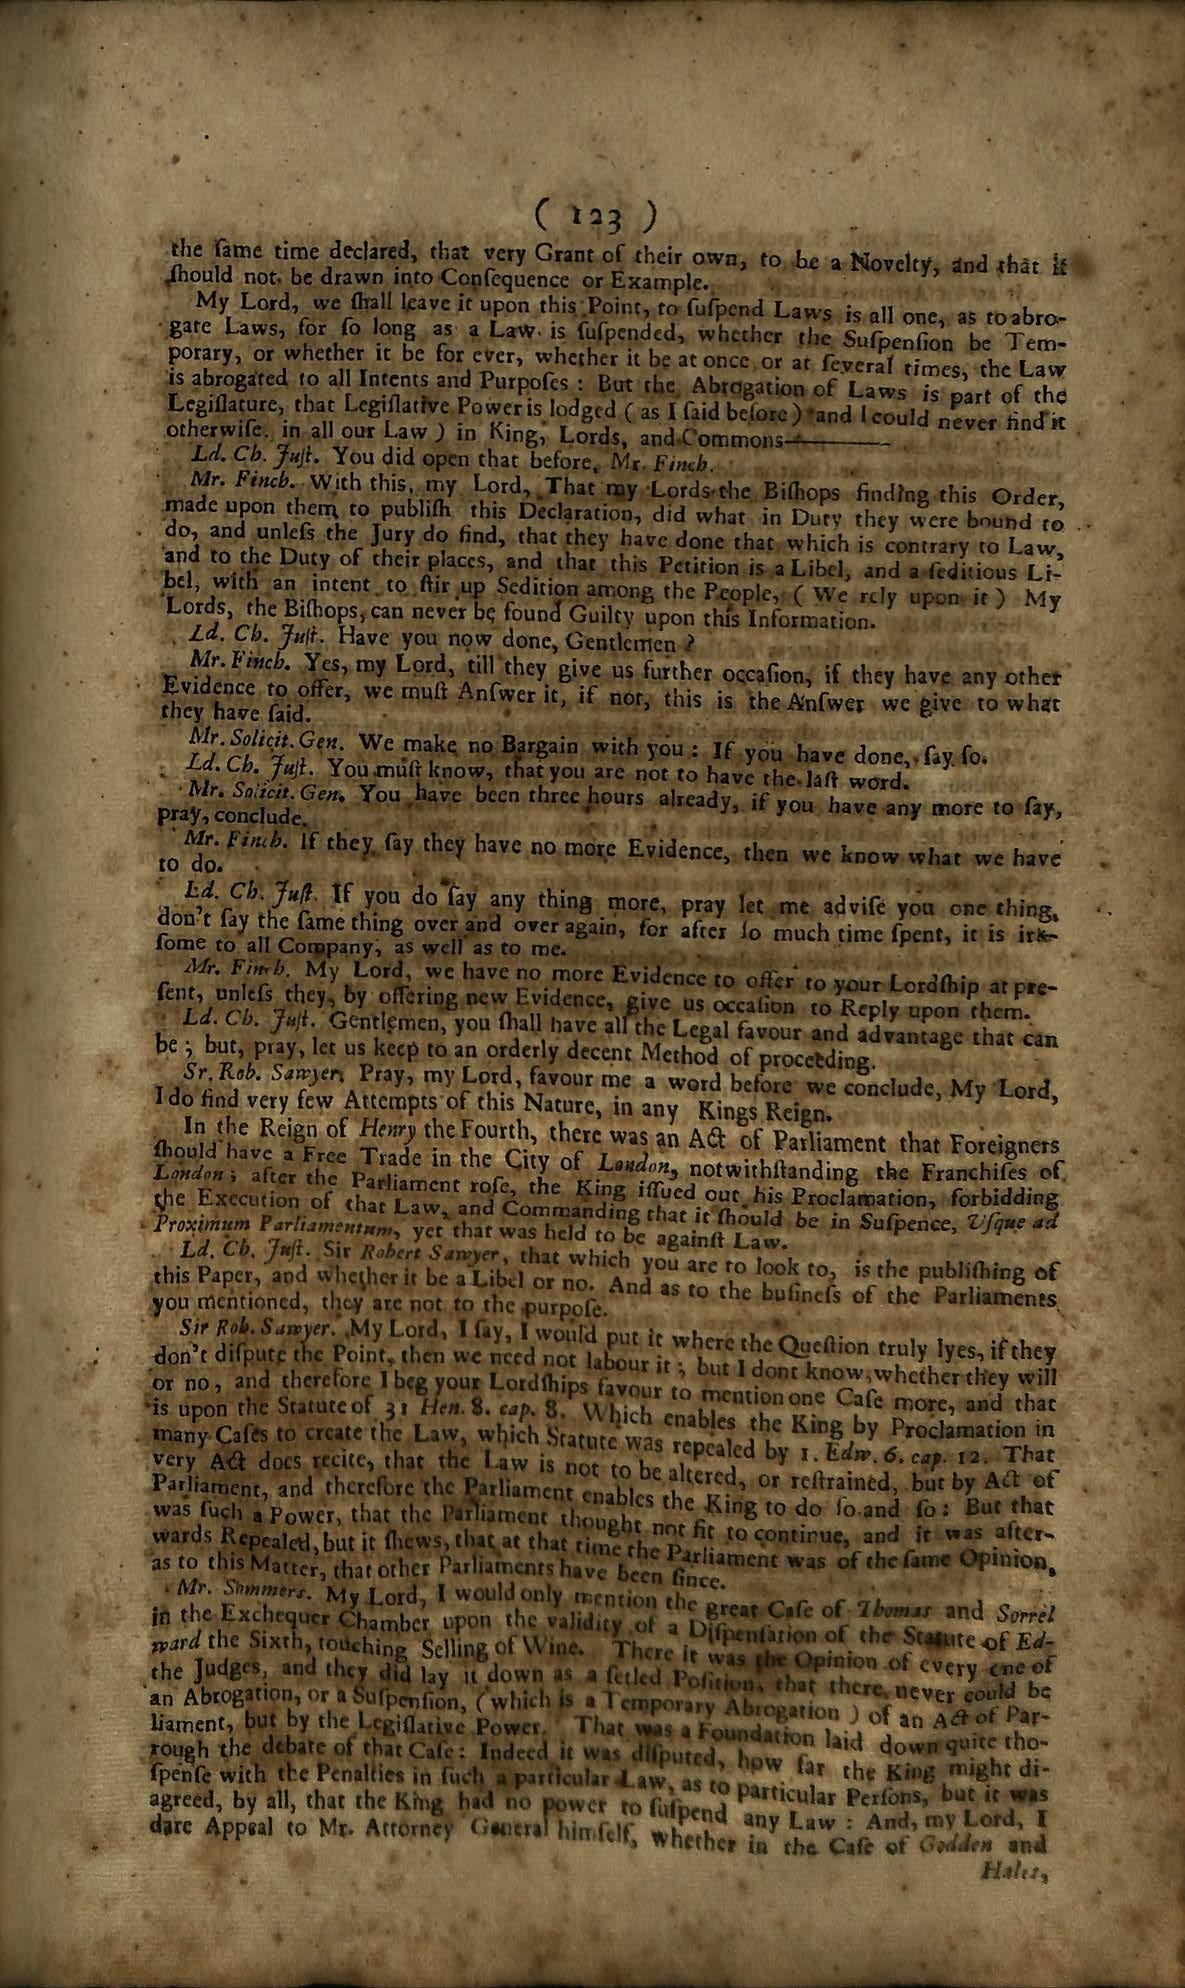 ( 123 )
the ſame time declared, that very Grant of their own, to be a Novelty, and that it
ſhould not be drawn into Conſequence or Example.
My Lord, we ſhall leave it upon this Point, to ſuſpend Laws is all one, as to abro-
gate Laws, for ſo long as a Law is ſuſpended, whether the Suſpenſion be Tem-
porary, or whether it be for ever, whether it be at once or at ſeveral times, the Law
is abrogated to all Intents and Purpoſes : But the Abrogation of Laws is part of the
Legiſlature, that Legiſlative Power is lodged ( as I ſaid before ) and I could never find it
otherwiſe in all our Law ) in King, Lords, and Commons—
Ld. Ch. Juſt. You did open that before, Mr. Finch.
Mr. Finch. With this, my Lord, That my Lords the Biſhops finding this Order,
made upon them to publiſh this Declaration, did what in Duty they were bound to
do, and unleſs the Jury do find, that they have done that which is contrary to Law,
and to the Duty of their places, and that this Petition is a Libel, and a ſeditious Li-
bel, with an intent to ſtir up Sedition among the People, ( We rely upon it ) My
Lords, the Biſhops, can never be found Guilty upon this Information.
Ld. Ch. Juſt. Have you now done, Gentlemen ?
Mr. Finch. Yes, my Lord, till they give us further occaſion, if they have any other
Evidence to offer, we muſt Anſwer it, if not, this is the Anſwer we give to what
they have ſaid.
Mr. Solicit. Gen. We make no Bargain with you : If you have done, ſay ſo.
Ld. Ch. Juſt. You muſt know, that you are not to have the laſt word.
Mr. Solicit. Gen. You have been three hours already, if you have any more to ſay,
pray, conclude.
Mr. Finch. If they ſay they have no more Evidence, then we know what we have
to do.
Ld. Ch. Juſt. If you do ſay any thing more, pray let me adviſe you one thing,
don't ſay the ſame thing over and over again, for after ſo much time ſpent, it is irk-
ſome to all Company, as well as to me.
Mr. Finch. My Lord, we have no more Evidence to offer to your Lordſhip at pre-
ſent, unleſs they, by offering new Evidence, give us occaſion to Reply upon them.
Ld. Ch. Juſt. Gentlemen, you ſhall have all the Legal favour and advantage that can
be ; but, pray, let us keep to an orderly decent Method of proceeding.
Sr. Rob. Sawyer. Pray, my Lord, favour me a word before we conclude, My Lord,
I do find very few Attempts of this Nature, in any Kings Reign.
In the Reign of Henry the Fourth, there was an Act of Parliament that Foreigners
ſhould have a Free Trade in the City of London, notwithſtanding the Franchiſes of
London ; after the Parliament roſe, the King iſſued out his Proclamation, forbidding
the Execution of that Law, and Commanding that it ſhould be in Suſpence, Uſque ad
Proximum Parliamentum, yet that was held to be againſt Law.
Ld. Ch. Juſt. Sir Robert Sawyer, that which you are to look to, is the publiſhing of
this Paper, and whether it be a Libel or no. And as to the buſineſs of the Parliaments
you mentioned, they are not to the purpoſe.
Sir Rob. Sawyer. My Lord, I ſay, I would put it where the Queſtion truly lyes, if they
don't diſpute the Point, then we need not labour it ; but I dont know, whether they will
or no, and therefore I beg your Lordſhips favour to mention one Caſe more, and that
is upon the Statute of 31 Hen. 8. cap. 8. Which enables the King by Proclamation in
many Caſes to create the Law, which Statute was repealed by 1. Edw. 6. cap. 12. That
very Act does recite, that the Law is not to be altered, or reſtrained, but by Act of
Parliament, and therefore the Parliament enables the King to do ſo and ſo : But that
was ſuch a Power, that the Parliament thought not fit to continue, and it was after-
wards Repealed, but it ſhews, that at that time the Parliament was of the ſame Opinion,
as to this Matter, that other Parliaments have been ſince.
Mr. Sommers. My Lord, I would only mention the great Caſe of Thomas and Sorrel
in the Exchequer Chamber upon the validity of a Diſpenſation of the Statute of Ed-
ward the Sixth, touching Selling of Wine. There it was the Opinion of every one of
the Judges, and they did lay it down as a ſetled Poſition, that there never could be
an Abrogation, or a Suſpenſion, ( which is a Temporary Abrogation ) of an Act of Par-
liament, but by the Legiſlative Power. That was a Foundation laid down quite tho-
rough the debate of that Caſe : Indeed it was diſputed, how far the King might di-
ſpenſe with the Penalties in ſuch a particular Law, as to particular Perſons, but it was
agreed, by all, that the King had no power to ſuſpend any Law : And, my Lord, I
dare Appeal to Mr. Attorney General himſelf, whether in the Caſe of Godden and
Hales,